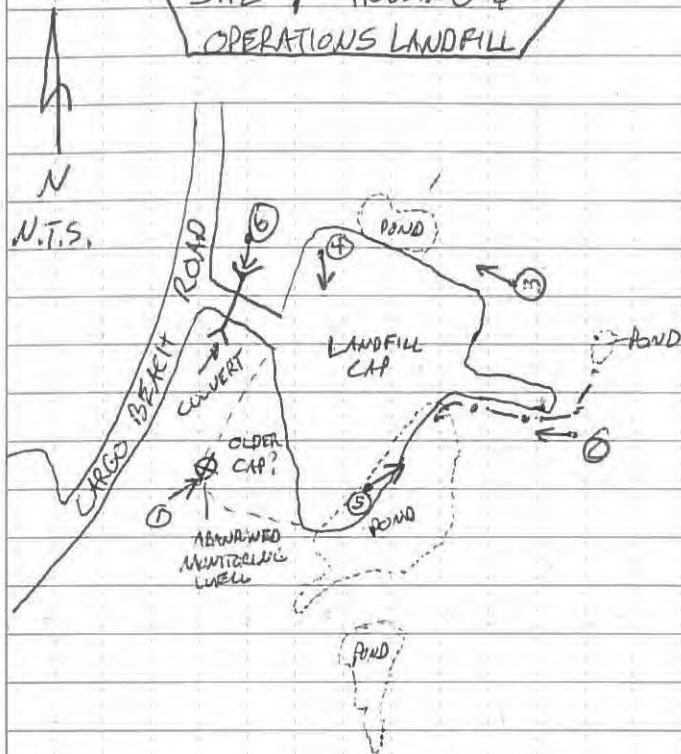 OPERATIONS LANDFILL
N
N.T.S.
CARGO BEACH ROAD
6
4
POND
3
CULVERT
LANDFILL
CAP
POND
6
OLDER
CAP?
1
5
POND
ABANDONED
MONITORING
WELL
POND